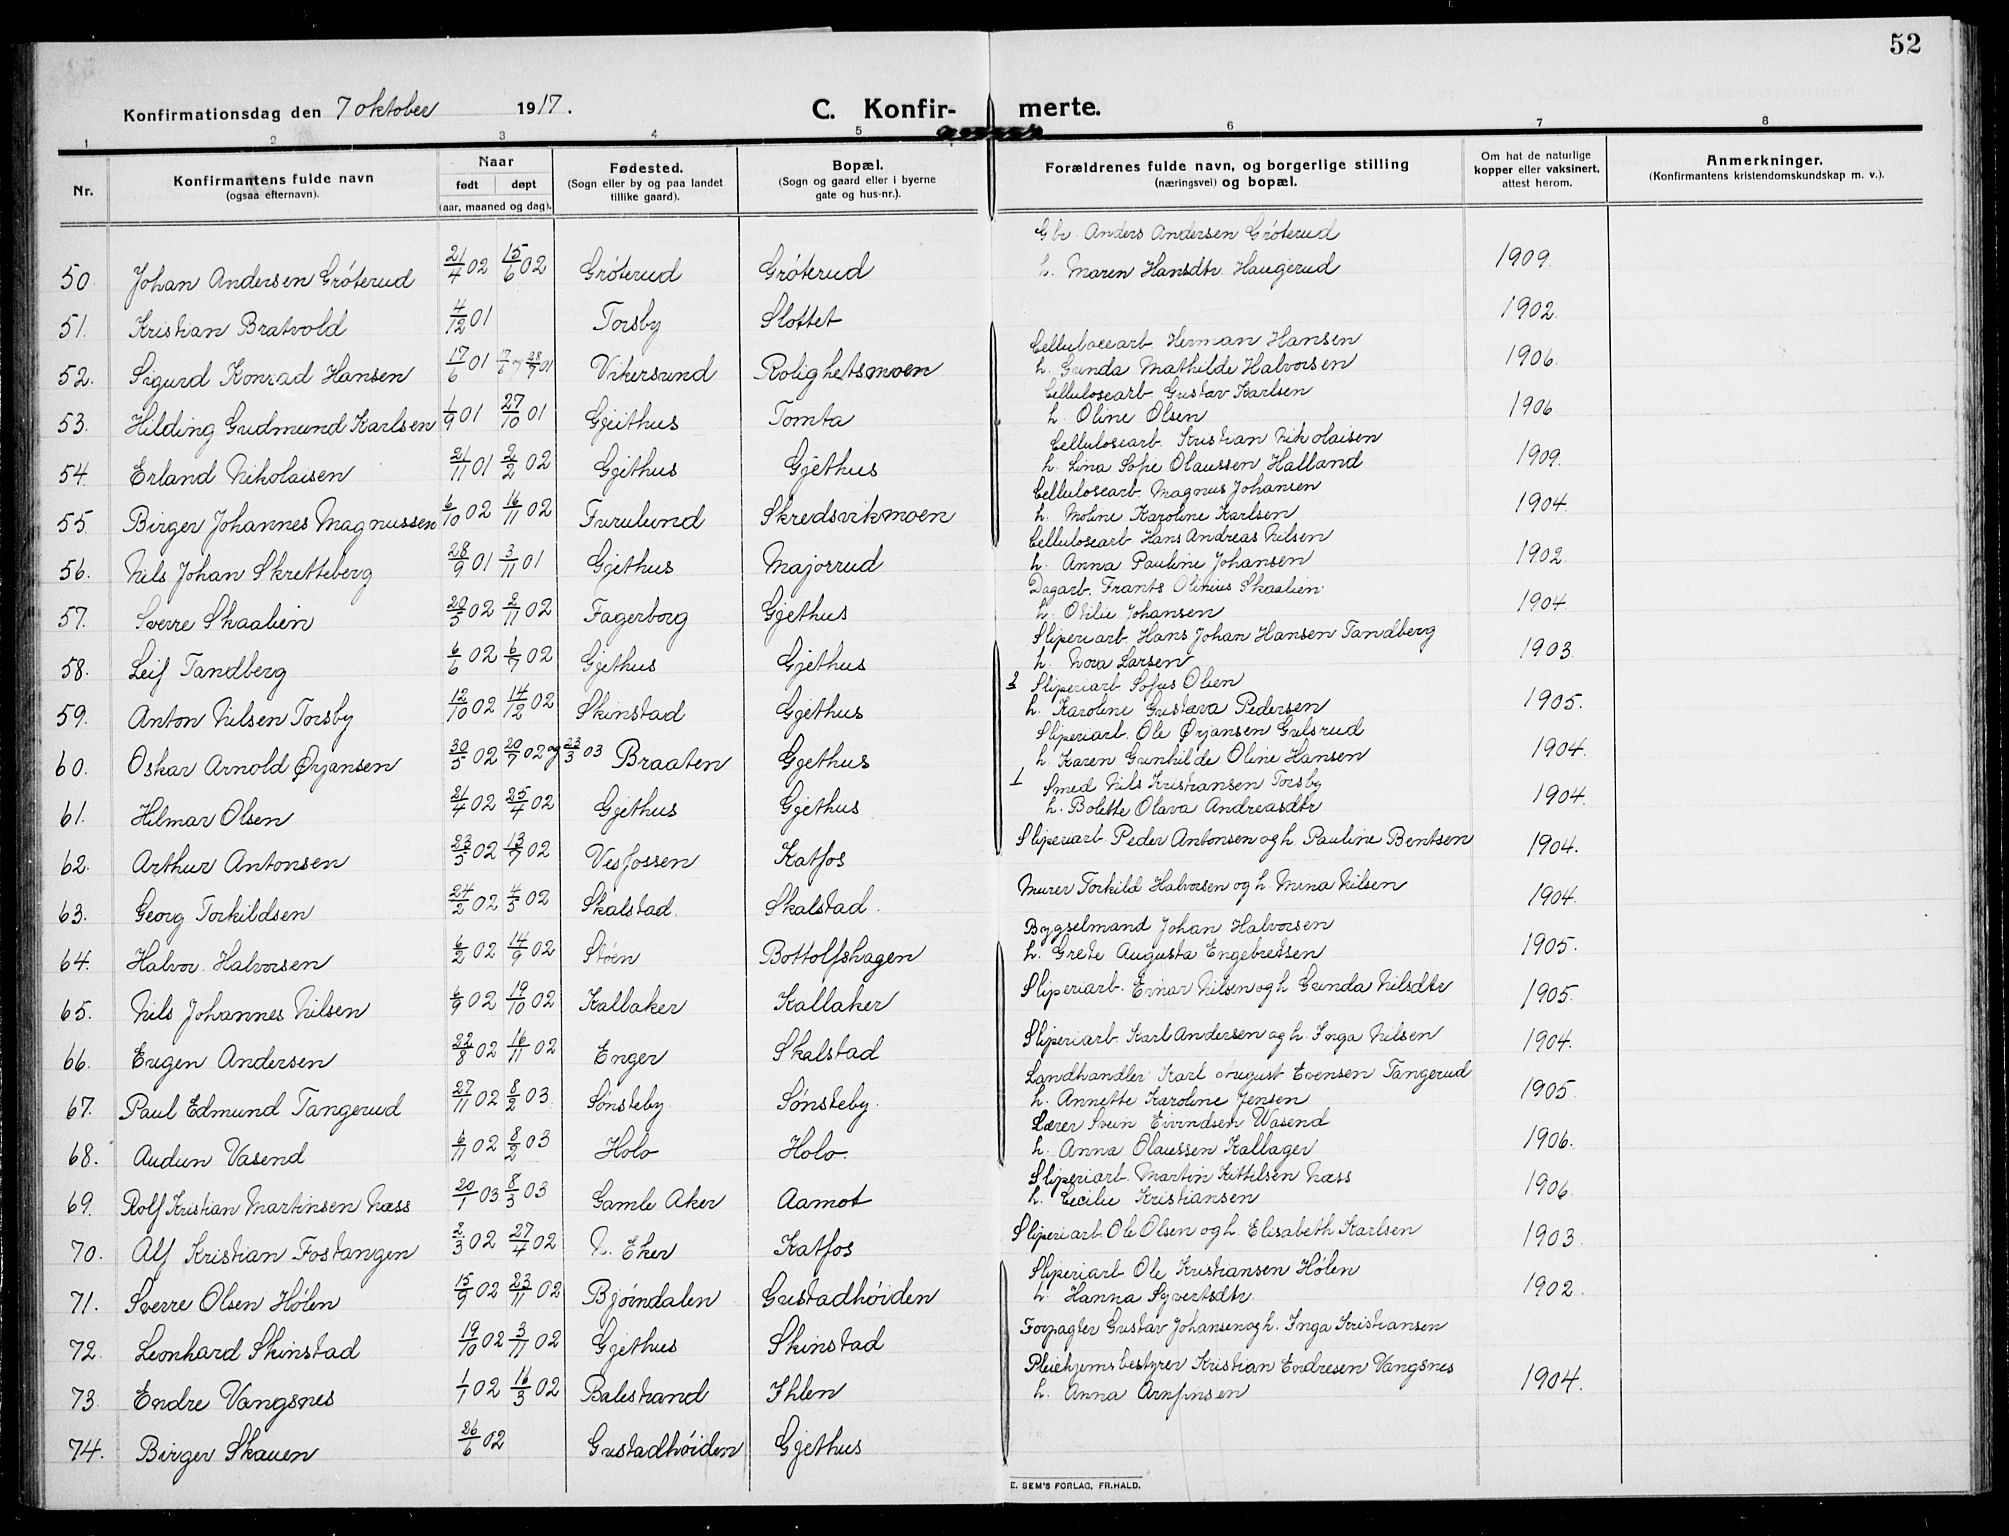 52
Konfirmationsdag den 7 oktober 1917. C. Konfir- merte.
1 2 3 4 5 6 7 8
Nr. Konfirmantens fulde navn (ogsaa efternavn). Naar født døpt (aar, maaned og dag). Fødested. (Sogn eller by og paa landet tillike gaard). Bopæl. (Sogn og gaard eller i byerne gate og hus-nr.). Forældrenes fulde navn, og borgerlige stilling (næringsvei) og bopæl. Om hat de naturlige kopper eller vaksinert, attest herom. Anmerkninger. (Konfirmantens kristendomskundskap m. v.).
Gbr. Anders Andersen Gróterud
50. Johan Andersen Gróterud 21/4 02 15/6 02 Gróterud Gróterud h. Maren Hansdtr. Haugerud 1909.
51. Kristian Bratvold 4/12 01 Torsby Slottet 1902.
Cellulosearb. Herman Hansen
52. Sigurd Konrad Hansen 17/6 01 7/6 og 28/7 01 Vikersund Rolighetsmoen h. Gunda Mathilde Halvorsen 1906.
Cellulosearb. Gustav Karlsen
53. Hilding Gudmund Karlsen 1/9 01 27/10 01 Gjeithus Tomta h. Oline Olsen 1906
Cellulosearb. Kristian Nikolaisen
54. Erland Nikolaisen 21/11 01 2/2 02 Gjethus Gjethus h. Lina Sofie Olaussen Halland 1909.
Cellulosearb. Magnus Johansen
55. Birger Johannes Magnussen 6/10 02 16/11 02 Furulund Skredsvikmoen h. Moline Karoline Karlsen 1904.
Cellulosearb. Hans Andreas Nilsen
56. Nils Johan Skretteberg 28/9 01 3/11 01 Gjethus Majorrud h. Anna Pauline Johansen 1902.
Dagarb. Frants Olinius Skaalien
57. Sverre Skaalien 20/5 02 2/11 02 Fagerborg Gjethus h. Otilie Johansen 1904
Sliperiarb. Hans Johan Hansen Tandberg
58. Leif Tandberg 6/6 02 6/7 02 Gjethus Gjethus h. Nora Larsen 1903.
2 Sliperiarb. Sofus Olsen
59. Anton Nilsen Torsby 12/10 02 14/12 02 Skinstad Gjethus h. Karoline Gustava Pedersen 1905.
Sliperiarb. Ole Ørjansen Gulsrud
60. Oskar Arnold Ørjansen 30/5 02 20/7 02 og 22/3 03 Braaten Gjethus h. Karen Gunhilde Oline Hansen 1904.
1 Smed Nils Kristiansen Torsby
61. Hilmar Olsen 21/4 02 25/4 02 Gjethus Gjethus h. Bolette Olava Andreasdtr 1904.
62. Arthur Antonsen 23/5 02 13/7 02 Vesfossen Katfos Sliperiarb. Peder Antonsen og h. Pauline Bentsen 1904.
63. Georg Torkildsen 24/2 02 4/5 02 Skalstad. Skalstad. Murer Torkild Halvorsen og h. Mina Nilsen 1904.
Bygselmand Johan Halvorsen
64. Halvor Halvorsen 6/2 02 14/9 02 Stóen Bottolfshagen h. Grete Augusta Engebretsen 1905.
65. Nils Johannes Nilsen 6/9 02 19/10 02 Kallaker Kallaker Sliperiarb. Einar Nilsen og h. Gunda Nilsdtr 1905.
66. Eugen Andersen 22/8 02 16/11 02 Enger Skalstad Sliperiarb. Karl Andersen og h. Inga Nilsen 1904.
Landhandler Karl August Evensen Tangerud
67. Paul Edmund Tangerud 27/11 02 8/2 03. Sønsteby Sønsteby. h. Annette Karoline Jensen 1905.
Lærer Svein Eivindsen Vasend
68. Audun Vasend 6/11 02 8/2 03 Holo Holo. h. Anna Olaussen Kallager 1906.
Sliperiarb. Martin Kittilsen Næss
69. Rolf Kristian Martinsen Næss 20/1 03. 8/3 03 Gamle Aker Aamot h. Cecilie Kristiansen 1906.
70. Alf Kristian Fostangen 2/3 02 27/4 02 N. Eker Katfos Sliperiarb. Ole Olsen og h. Elisabeth Karlsen 1903.
Sliperiarb. Ole Kristiansen Hólen
71. Sverre Olsen Hólen 15/9 02 23/11 02 Bjórndalen Gustadhóiden h. Hanna Syvertsdtr. 1902.
72. Leonhard Skinstad 19/10 02 3/11 02 Gjethus Skinstad Forpagter Gustav Johansen og h. Inga Kristiansen
Pleiehjemsbestyrer Kristian Endresen Vangsnes
73. Endre Vangsnes 1/1 02 16/3 02 Balestrand Ihlen h. Anna Arnfinsen 1904.
74. Birger Skauen 26/6 02 Gustadhóiden Gjethus
E. SEM'S FORLAG, FR.HALD.